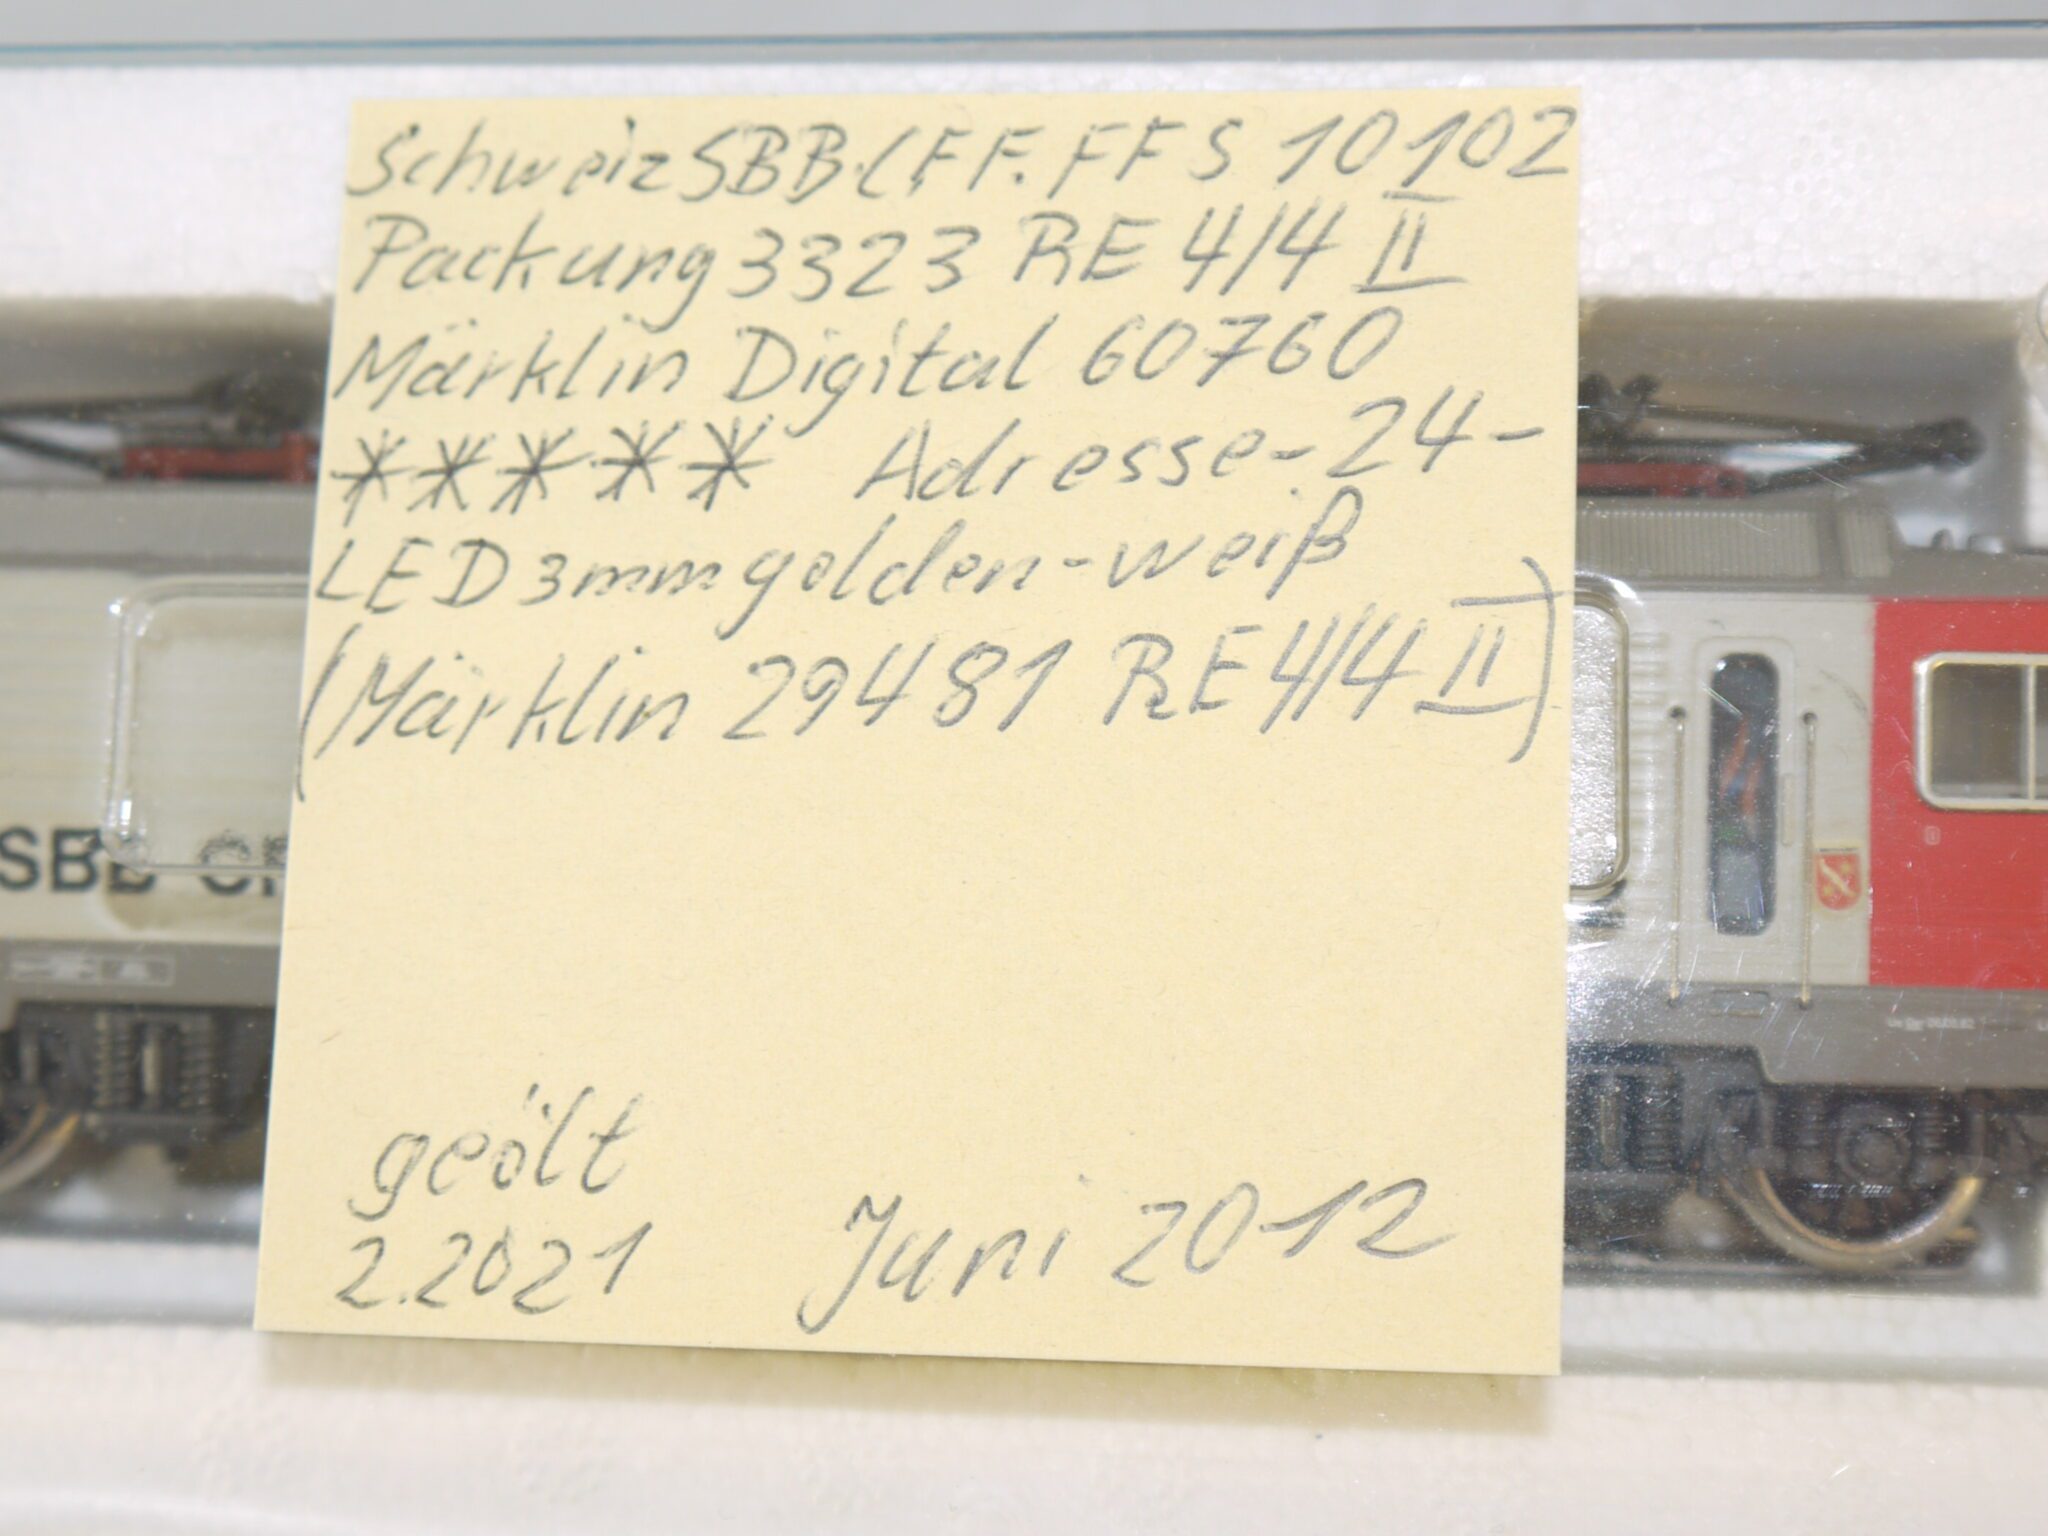 Schweiz SBB.CFF.FFS 10102
Packung 3323 RE 4/4 II
Märklin Digital 60760
***** Adresse-24-
LED 3mm golden-weiß
(Märklin 29481 RE 4/4 II)
geölt
2.2021
Juni 2012
SBB